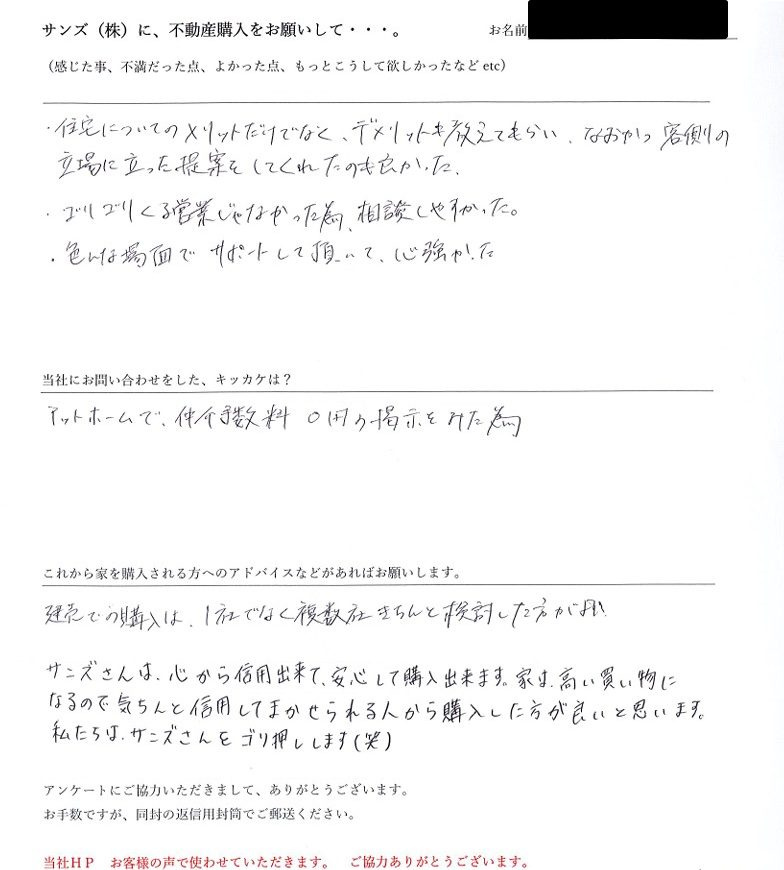 サンズ（株）に、不動産購入をお願いして・・・。 お名前
（感じた事、不満だった点、よかった点、もっとこうして欲しかったなど etc）
・住宅についてのメリットだけでなく、デメリットも教えてもらい、なおかつ 客側の
立場に立った提案をしてくれたのも良かった。
・ゴリゴリくる営業じゃなかった為、相談しやすかった。
・色んな場面で サポートして頂いて、心強かった
当社にお問い合わせをした、キッカケは？
アットホームで、仲介手数料 0円の掲示をみた為
これから家を購入される方へのアドバイスなどがあればお願いします。
建売での購入は、1社でなく複数社きちんと検討した方が
サンズさんは、心から信用出来て、安心して購入出来ます。家は、高い買い物に
なるので気ちんと信用してまかせられる人から購入した方が良いと思います。
私たちは、サンズさんをゴリ押しします(笑)
アンケートにご協力いただきまして、ありがとうございます。
お手数ですが、同封の返信用封筒でご郵送ください。
当社ＨＰ お客様の声で使わせていただきます。 ご協力ありがとうございます。